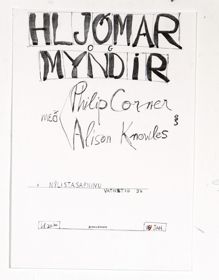 HLJÓMAR
OG
MYNDIR
MEÐ Philip Corner &
Alison Knowles
NÝLISTASAFNINU
VATNSSTÍG 3b